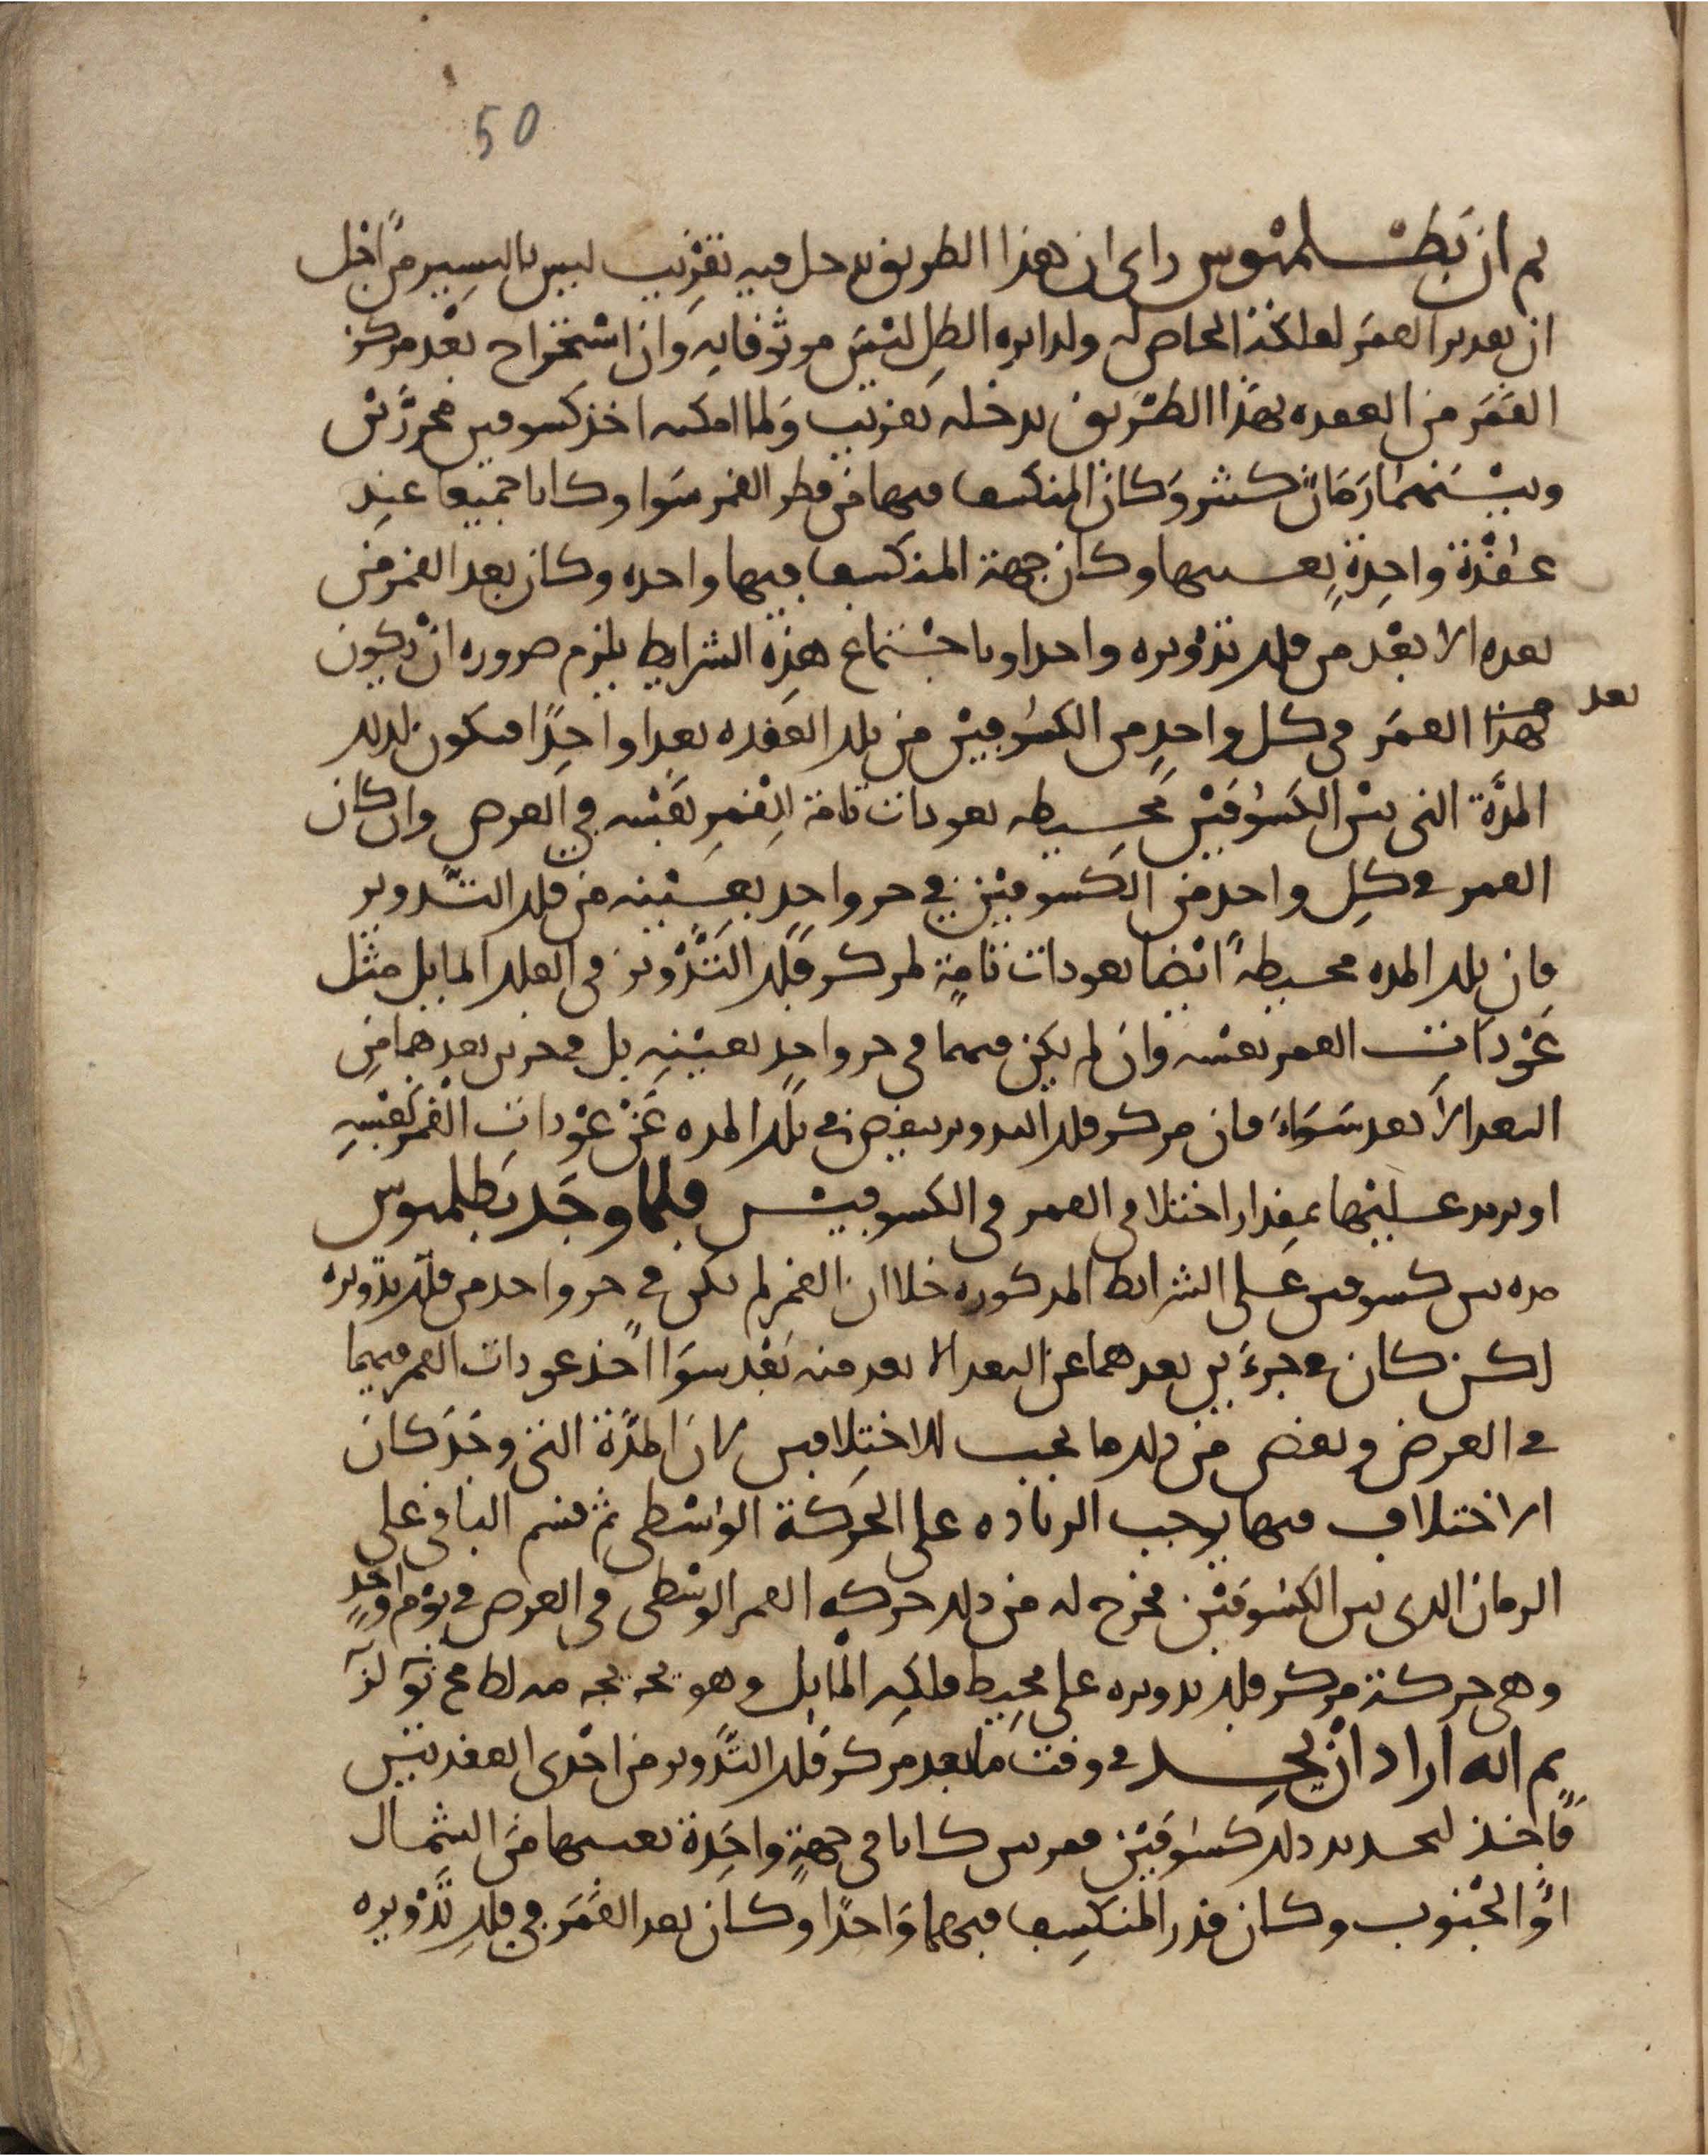 50
ثم ان بطلميوس راى ان هذا الطريق يدخل فيه تقريب ليس باليسير من اجل
ان تقدير القمر لفلكه الحاصل له ولدايره الظل ليس موثوقا به وان استخراج بعد مركز
القمر من العقده بهذا الطريق يدخله تقريب ولما امكنه اخذ كسوفين محررين
وبينهما زمان كثير وكان المنكسف فيهما من قطر القمر سوا وكانا جميعا عند
عقدة واحدة بعينها وكان جهة المنكسف فيهما واحده وكان بعد القمر من
بعده الابعد من فلك تدويره واحدا وباجتماع هذه الشرايط يلزم ضروره ان يكون
بعد
القمر في كل واحد من الكسوفين من تلك العقده بعدا واحدا فيكون لذلك
المدة التي بين الكسوفين محيطه بعودات تامة للقمر نفسه في العرض وان كان
القمر في كل واحد من الكسوفين في جز واحد بعينه من فلك التدوير
فان تلك المده محيطة ايضا بعودات تامة لمركز فلك التدوير في الفلك المايل مثل
عودات القمر نفسه وان لم يكن فيهما في جز واحد بعينه بل في جزين بعدهما من
البعد الابعد سواء فان مركز فلك التدوير ينقص في تلك المده عن عودات القمر نفسه
او يزيد عليها بمقدار اختلاف القمر في الكسوفين فلما وجد بطلميوس
مده بين كسوفين على الشرايط المذكوره خلا ان القمر لم يكن في جز واحد من فلك تدويره
لكن كان في جزءين بعدهما عن البعد الابعد منه بعد سوا اخذ عودات القمر فيهما
في العرض ونقص من ذلك ما يجب للاختلافين لان المدة التي وجد كان
الاختلاف فيها يوجب الزياده على الحركة الواسطى ثم قسم الباقي على
الزمان الذي بين الكسوفين فخرج له من ذلك حركه القمر الوسطى في العرض في يوم واحد
وهي حركة مركز فلك تدويره على محيط فلكه المايل وهو يجه يجه مه لط مح نو لز
ثم انه اراد ان يجد في وقت ما بعد مركز فلك التدوير من احدى العقدتين
فاخذ لتحديد ذلك كسوفين قمريين كانا في جهة واحدة بعينها من الشمال
او الجنوب وكان قدر المنكسف فيهما واحدا وكان بعد القمر في فلك تدويره